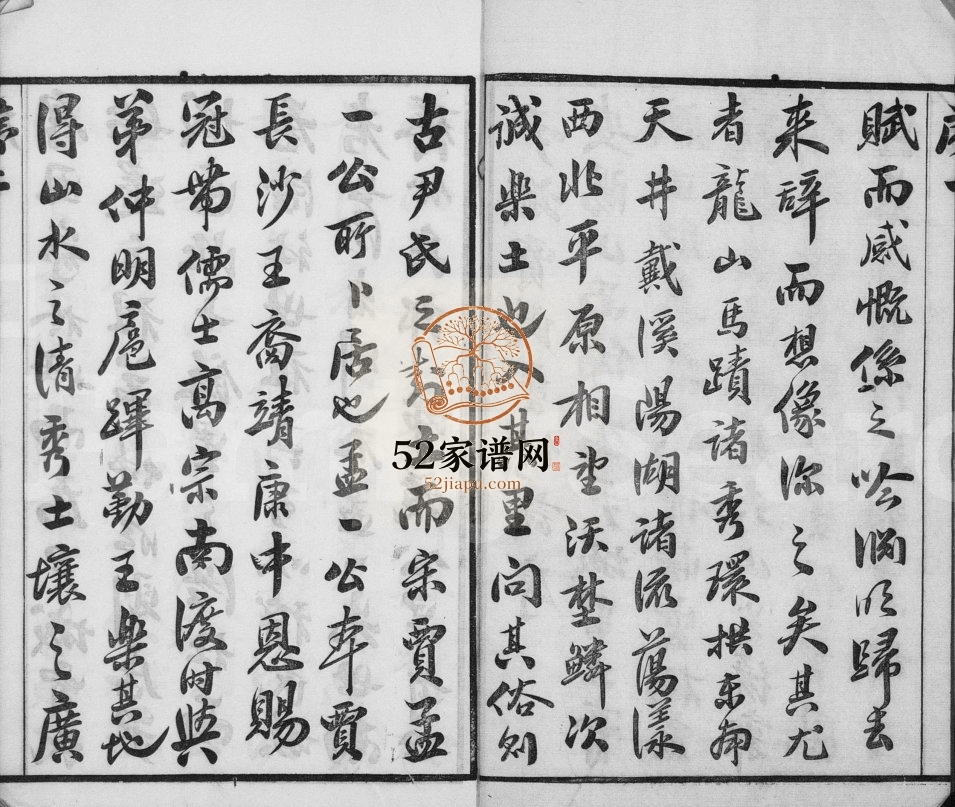 賦而感慨係之吟淵明歸去
来辭而想像深之矣其尤
者龍山馬蹟諸秀環拱東南
天井戴溪湯湖諸流蕩漾
西北平原相望沃壄鱗次
誠樂土也入其里问其俗则
古尹氏之而宋賈孟
一公所卜居也孟一公奉賈
長沙王裔靖康中恩賜
冠帶儒士高宗南渡时與
弟仲明扈蹕勤王樂其地
得山水之清秀土壤之廣
52家谱网
52jiapu.com